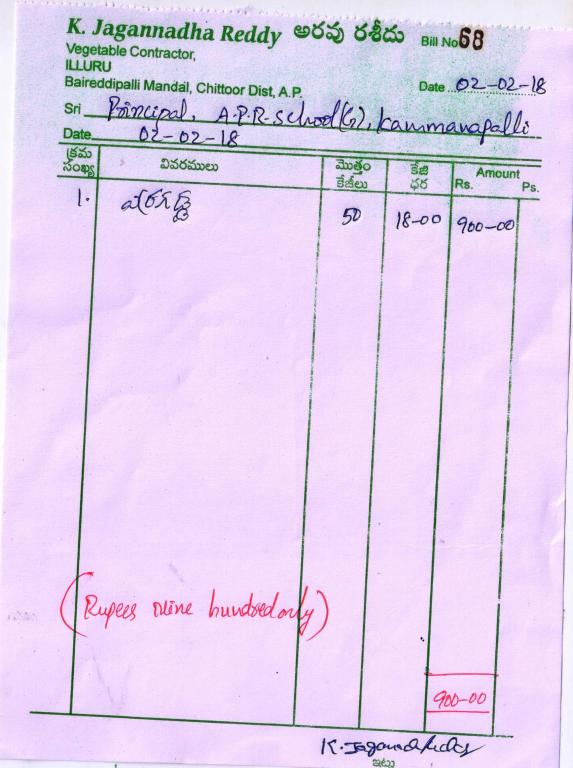 K. Jagannadha Reddy అరవు రశీదు Bill No 68
Vegetable Contractor,
ILLURU
Baireddipalli Mandal, Chittoor Dist, A.P. Date 02-02-18
Sri Principal, A.P.R. School(G), Kammanapalli
Date 02-02-18
క్రమ సంఖ్య వివరములు మొత్తం కేజీలు కేజి ధర Amount Rs. Ps.
1. 50 18-00 900-00
(Rupees nine hundred only)
900-00
K. Jaganadha Reddy
ఇట్లు